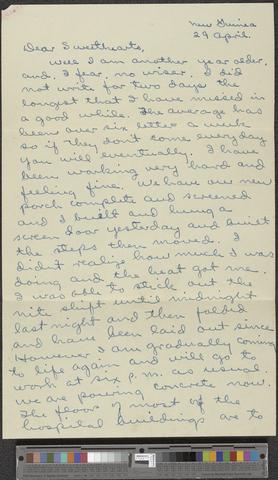 New Guinea
29 April.
Dear Sweethearts,
Well I am another year older,
and, I fear, no wiser. I did
not write for two days the
longest that I have missed in
a good while. The average has
been over six letter a week
so if they don't come everyday
you will eventually. I have
been working very hard and
feeling fine. We have our new
porch complete and screened
and I built and hung a
screen door yesterday and built
the steps then moved. I
didn't realize how much I was
doing and the heat got me.
I was able to stick out the
nite shift until midnight
last night and then folded
and have been laid out since.
However I am gradually coming
to life again and will go to
work at six p.m. as usual.
We are pouring concrete now.
The floor of most of the
hospital buildings are to